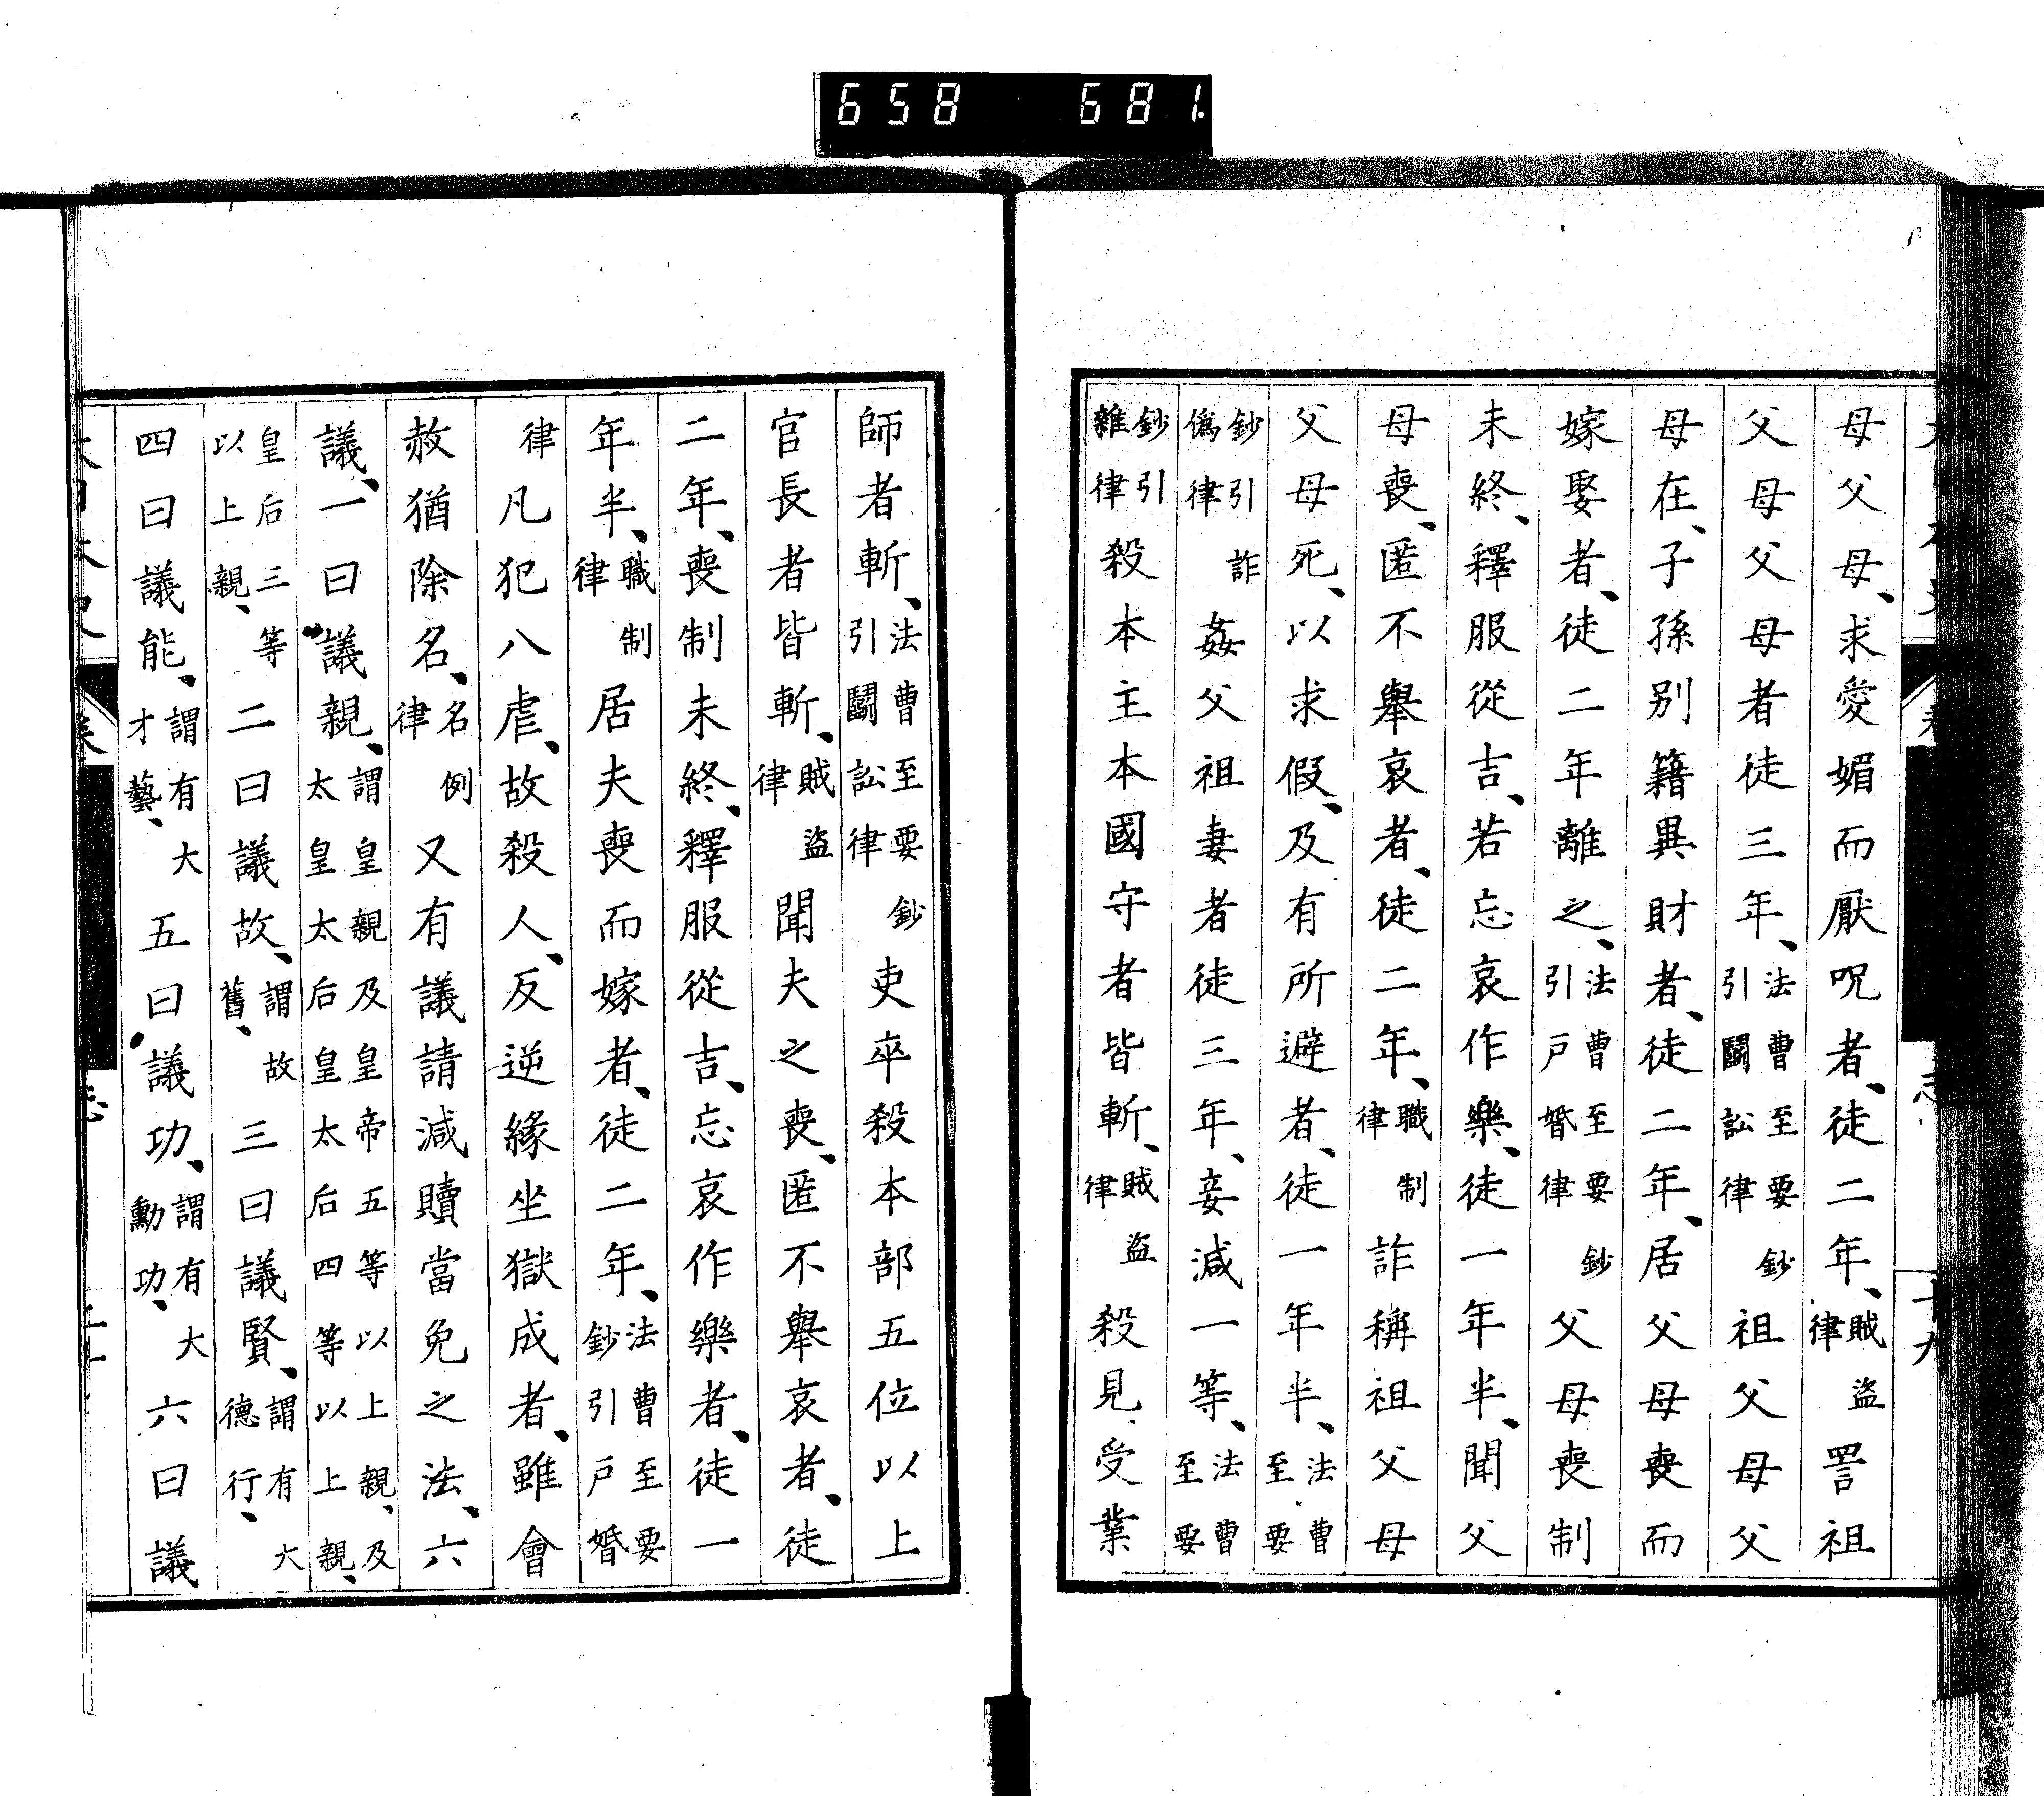 658 681
母父母、求愛媚而厭呪者、徒二年、賊盜律詈祖
父母父母者徒三年、法曹至要鈔引鬭訟律祖父母父
母在、子孫別籍異財者、徒二年、居父母喪而
嫁娶者、徒二年離之、法曹至要鈔引戶婚律父母喪制
未終、釋服從吉、若忘哀作樂、徒一年半、聞父
母喪、匿不擧哀者、徒二年、職制律詐稱祖父母
父母死、以求假、及有所避者、徒一年半、法曹至要
鈔引詐僞律姦父祖妻者徒三年、妾減一等、法曹至要
鈔引雜律殺本主本國守者皆斬、賊盜律殺見受業
師者斬、法曹至要鈔引鬭訟律吏卒殺本部五位以上
官長者皆斬、賊盜律聞夫之喪、匿不擧哀者、徒
二年、喪制未終、釋服從吉、忘哀作樂者、徒一
年半、職制律居夫喪而嫁者、徒二年、法曹至要鈔引戶婚
律凡犯八虐、故殺人、反逆緣坐獄成者、雖會
赦猶除名、名例律又有議請減贖當免之法、六
議、一曰議親、謂皇親及皇帝五等以上親、及太皇太后皇太后四等以上親、
皇后三等以上親、二曰議故、謂故舊、三曰議賢、謂有大德行、
四曰議能、謂有大才藝、五曰議功、謂有大勳功、六曰議